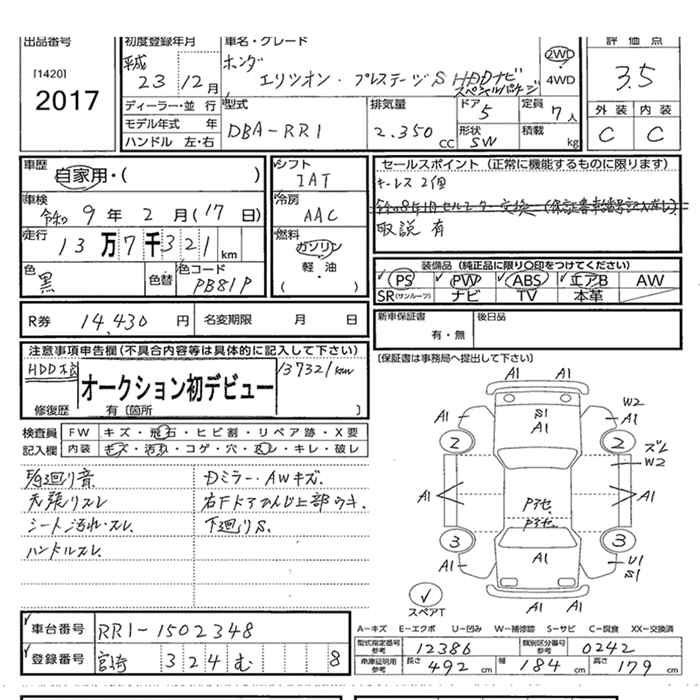 出品番号
[1420]
2017
初度登録年月
平成
23 12月
車名・グレード
ホンダ
エリシオン・プレステージS HDDナビ
スペシャルパッケージ
2WD
4WD
評価点
3.5
外装 内装
C C
ディーラー・並行
モデル年式 年
ハンドル 左・右
型式
DBA-RR1
排気量
2.350 CC
ドア
5
形状
SW
定員
7人
積載
kg
車歴
自家用・( )
車検
令和 9年 2月(17日)
走行
13万7千321km
色
黒
色替
色コード
PB81P
シフト
IAT
冷房
AAC
燃料
ガソリン
軽油
( )
セールスポイント(正常に機能するものに限ります)
キーレス2個
取説有
装備品(純正品に限り○印をつけてください)
PS PW ABS エアB AW
SR(サンルーフ) ナビ TV 本革
R券 14,430円 名変期限 月 日
新車保証書
有・無
後日品
(保証書は事務局へ提出して下さい)
注意事項申告欄(不具合内容等は具体的に記入して下さい)
オークション初デビュー
137321km
修復歴 有〔箇所 〕
検査員
記入欄
FW キズ・飛石・ヒビ割・リペア跡・X要
内装 キズ・汚れ・コゲ・穴・スレ・キレ・破レ
天張リスレ
シート汚れ・スレ
ハンドルスレ
Dミラー・AWキズ
下廻りS
A1 A1
A1 S1 A1 W2
2 A1 2 ズレ
W2
A1 A1
Pアセ
Pアセ
3 3
A1 A1 U1
S1
A1
スペアT
A-キズ E-エクボ U-凹み W-補修跡 S-サビ C-腐食 XX-交換済
車台番号 RR1-1502348
登録番号 宮崎 324 む 8
型式指定番号
参考
12386
類別区分番号
参考
0242
車庫証明用
参考
長さ 492 cm 幅 184 cm 高さ 179 cm